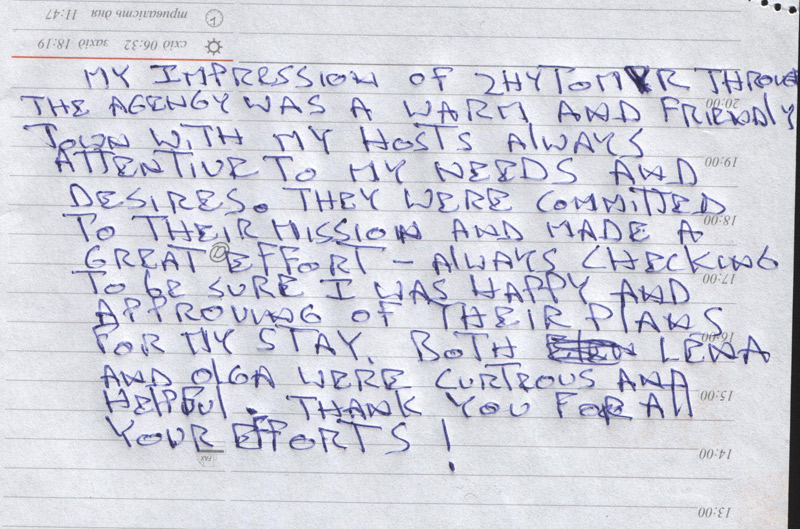 MY IMPRESSION OF ZHYTOMYR THROUGH
THE AGENGY WAS A WARM AND FRIENDLY
TOWN WITH MY HOSTS AlWAYS
ATTENTIVE TO MY NEEDS AND
DESIRES. THEY WERE COMMITTED
TO THEIR MISSION AND MADE A
GREAT EFFORT – AlWAYS CHECKING
TO BE SURE I WAS HAPPY AND
APPROVING OF THEIR PlANS
FOR MY STAY. BOTH LENA
AND OlGA WERE CURTEOUS AND
HElPFUl. THANK YOU FOR All
YOUR EFFORTS!
тривалість дня 11:47
схід 06:32 захід 18:19
20:00
19:00
18:00
17:00
16:00
15:00
14:00
13:00